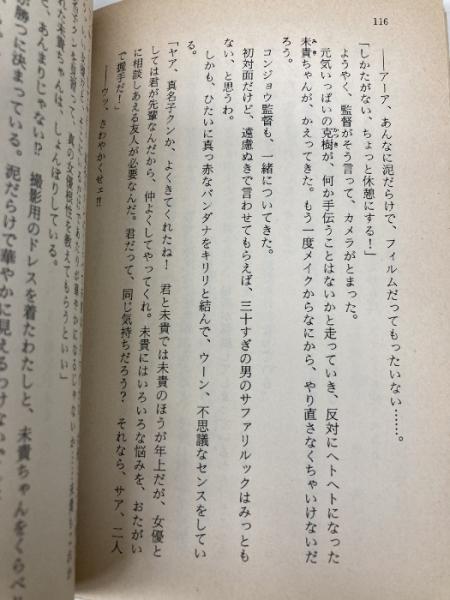 116
――アーア、あんなに泥だらけで、フィルムだってもったいない……。
「しかたがない、ちょっと休憩にする！」
ようやく、監督がそう言って、カメラがとまった。
元気いっぱいの克樹が、何か手伝うことはないかと走っていき、反対にヘトヘトになった
未貴ちゃんが、かえってきた。もう一度メイクからなにから、やり直さなくちゃいけないだ
ろう。
コンジョウ監督も、一緒についてきた。
初対面だけど、遠慮ぬきで言わせてもらえば、三十すぎの男のサファリルックはみっとも
ない、と思うわ。
しかも、ひたいに真っ赤なバンダナをキリリと結んで、ウーン、不思議なセンスをしてい
る。
「ヤア、真名子クンか、よくきてくれたね！　君と未貴では未貴のほうが年上だが、女優と
しては君が先輩なんだから、仲よくしてやってくれ。未貴にはいろいろな悩みを、おたがい
に相談しあえる友人が必要なんだ。君だって、同じ気持ちだろう？　それなら、サア、二人
で握手だ！」
――ウッ、さわやかくせェ!!
女優根性を教えてもらうといい」
未貴ちゃんは、しょんぼりしている。
、あんまりじゃない!?　撮影用のドレスを着たわたしと、未貴ちゃんをくらべ
が勝つに決まっている。泥だらけで華やかに見えるっけない